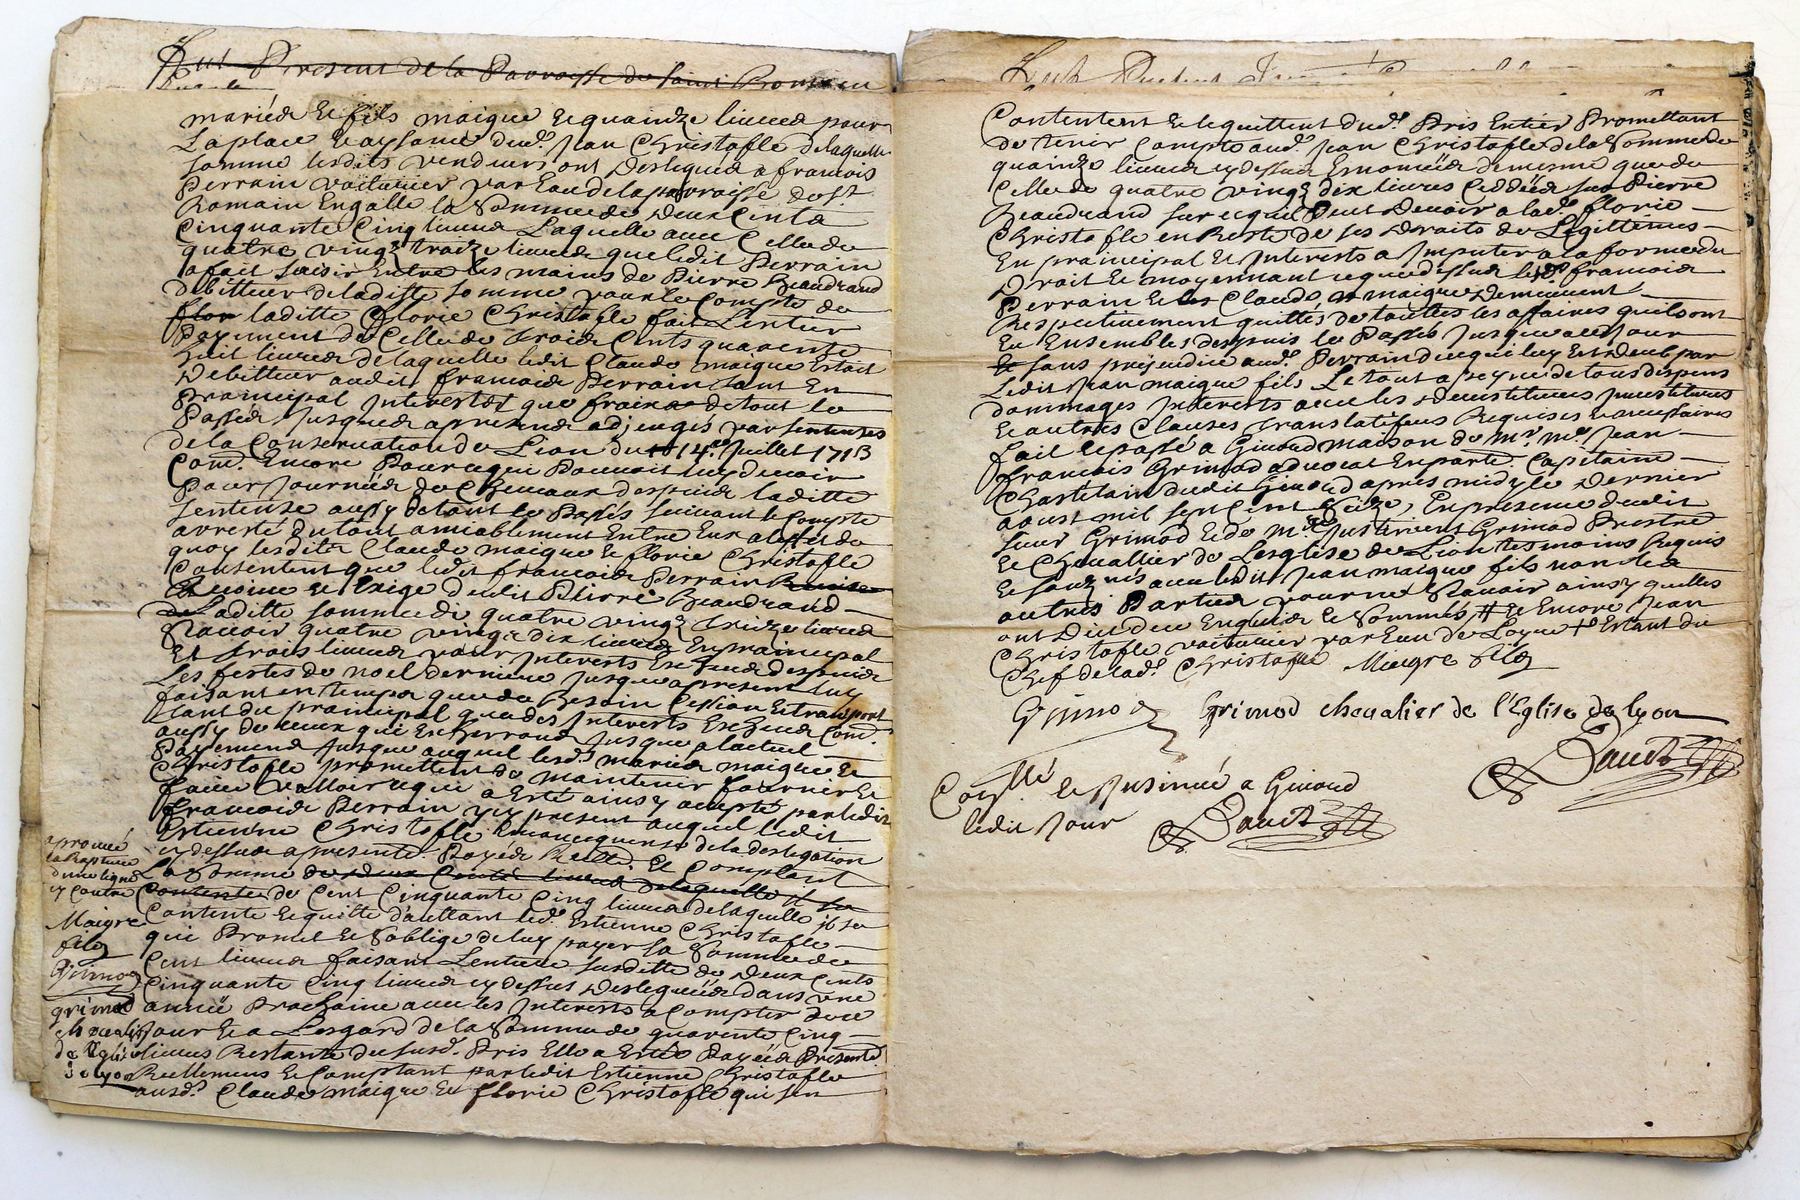 fut Present de la Parroisse de saint Romain
mariés et fils maigre et quainze livres pour
la place et aysance dud. Jean Christofle de laquelle
somme lesdits vendeurs ont deslegué a francois
Perrain voiturier par Eau de la parroisse de st.
Romain Engalle la Somme de deux Cents
Cinquante Cinq livres Laquelle avec Celle de
quatre vingt traize livres que ledit Perrain
a fait saisir Entre les mains de Pierre Beaudrand
debitteur de laditte somme pour le Compte de
flor laditte florie Christofle fait Lentier
payement de Celle de Trois Cents quarente
huit livres de laquelle ledit Claude maigre Estoit
debitteur audit francois Perrain tant En
praincipal Interestst que frains de tout le
Passés Jusques a presend adjuges par sentense
de la Conservation de Lion du 14e. Juillet 1713
Com. Encore Pour ce qui Pouvoit luy devoir
Pour Journées de Chevaux despuis laditte
sentense aussy de tout le Passés suivant le Compte
arresté du tout amiablement Entre Eux a leffet de
quoy lesdits Claude maigre et florie Christofle
Consentent que ledit francois Perrain
et Exige dudit Pierre Beaudrand
de Laditte somme de quatre vingt traize livres
Scavoir quatre vingt dix livres En praincipal
Et trois livres pour Interests Escheus despuis
Les festes de noel dernieres Jusques a present luy
faisant en temps que de Besoin Cession Et transport
tant du prainipal que des Interests Escheus Com.
aussy de ceux qui Escherront Jusque a lactuel
Payement Jusque auquel lesd. mariés maigre et
Christofle promettent de maintenir fournir et
faire valloir ce qui a Esté ainsy accepté par ledit
francois Perrain icy present auquel ledit
Estienne Christofle En consequense de la deslegation
cy dessus a presente. Payée Reelle. Et Comptant
La Somme de deux Cents livres de laquelle il se
Contente de Cent Cinquante Cinq livres de laquelle il se
Contente et quitte d'aultant led. Estienne Christofle
qui Promet et Soblige de luy payer la Somme de
Cent livres faisant Lentiere susditte de deux Cents
Cinquante Cinq livres cy dessus desleguées dans une
année Prochaine avec les Interests a Compter de ce
Jour Et a Lesgard de la Somme de quarente Cinq
livres Restante du susd. Pris Elle a Estée Payée Presente.
Reellement et Comptant par ledit Estienne Christofle
ausd. Claude maigre et florie Christofle qui sen
aprouvé
la Rapture
d'une ligne
cy contre
Maigre
fils
Grimod
grimod
chevalier
de l'Eglise
de lyon
Contentent et le quittent dud. Pris Entier Promettant
de tenir Compte aud. Jean Christofle de la Somme de
quainze livres cy dessus Enoncée de mesme que de
Celle de quatre vingt dix livres Ceddées sur Pierre
Beaudrand sur ce qu'il Peut Devoir a lad. florie
Christofle en Reste de ses Droits de Legittimes
En prainipal et Interests a Imputer a la forme du
Droit Et moyennant ce que dessus led. francois
Perrain et les Claude maigre Demeurent
Respectivement quittes de touttes les affaires quils ont
Eu Ensembles despuis le Passés Jusque a ce Jour
sans prejudice aud. Perrain de ce qui luy Est deub par
Ledit Jean maigre fils Le tout a peyne de tous despens
dommages Interests avec les devestitures Investitures
et autres Clauses Translatifves Requises et necessaires
fait et Passé a Givord maison de mr. me. Jean
francois Grimod advocat En parle. Capitaine
Chastelain dudit Givord apres midy le Dernier
aoust mil sept Cent Seize, En presence dudit
sieur Grimod et de mre. Just vincent Grimod Prestre
et Chevallier de Lesglise de Lion tesmoins Requis
et soubznis avec ledit Jean maigre fils non les
autres Parties pour ne Scavoir ainsy quelles
ont Dit de ce Enquises et Sommés # et Encore Jean
Christofle voiturier par Eau de Loyre + Estant du
Chef de lad. Christofle Maigre fils
Grimod grimod chevalier de l'Eglise de lyon
Daudt
Con.llé et Insinué a Givord
ledit Jour Daudt